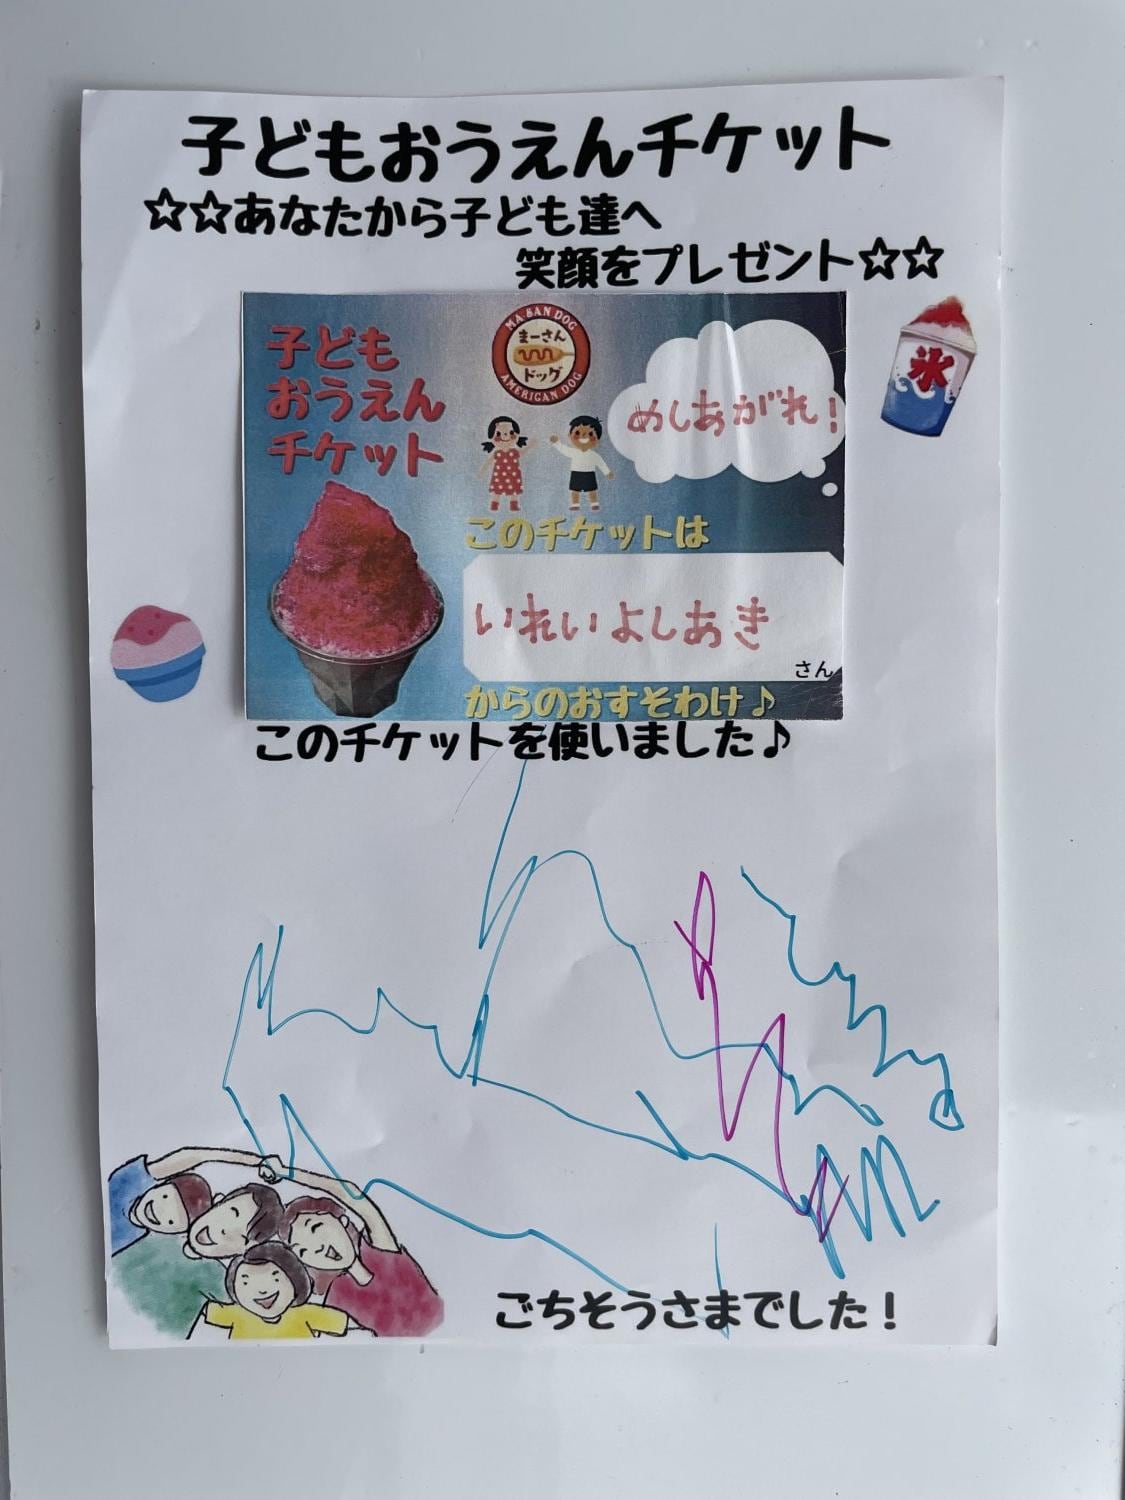 子どもおうえんチケット
☆☆あなたから子ども達へ
笑顔をプレゼント☆☆
子ども
おうえん
チケット
MA-SAN DOG
まーさん
ドッグ
AMERICAN DOG
めしあがれ!
氷
このチケットは
いれいよしあき
さん
からのおすそわけ♪
このチケットを使いました♪
ごちそうさまでした!